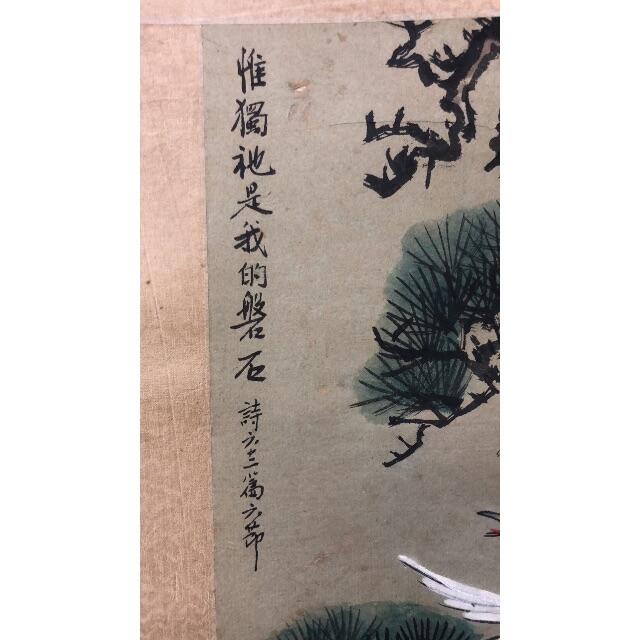 惟獨祂是我的磐石
詩六三篇六節